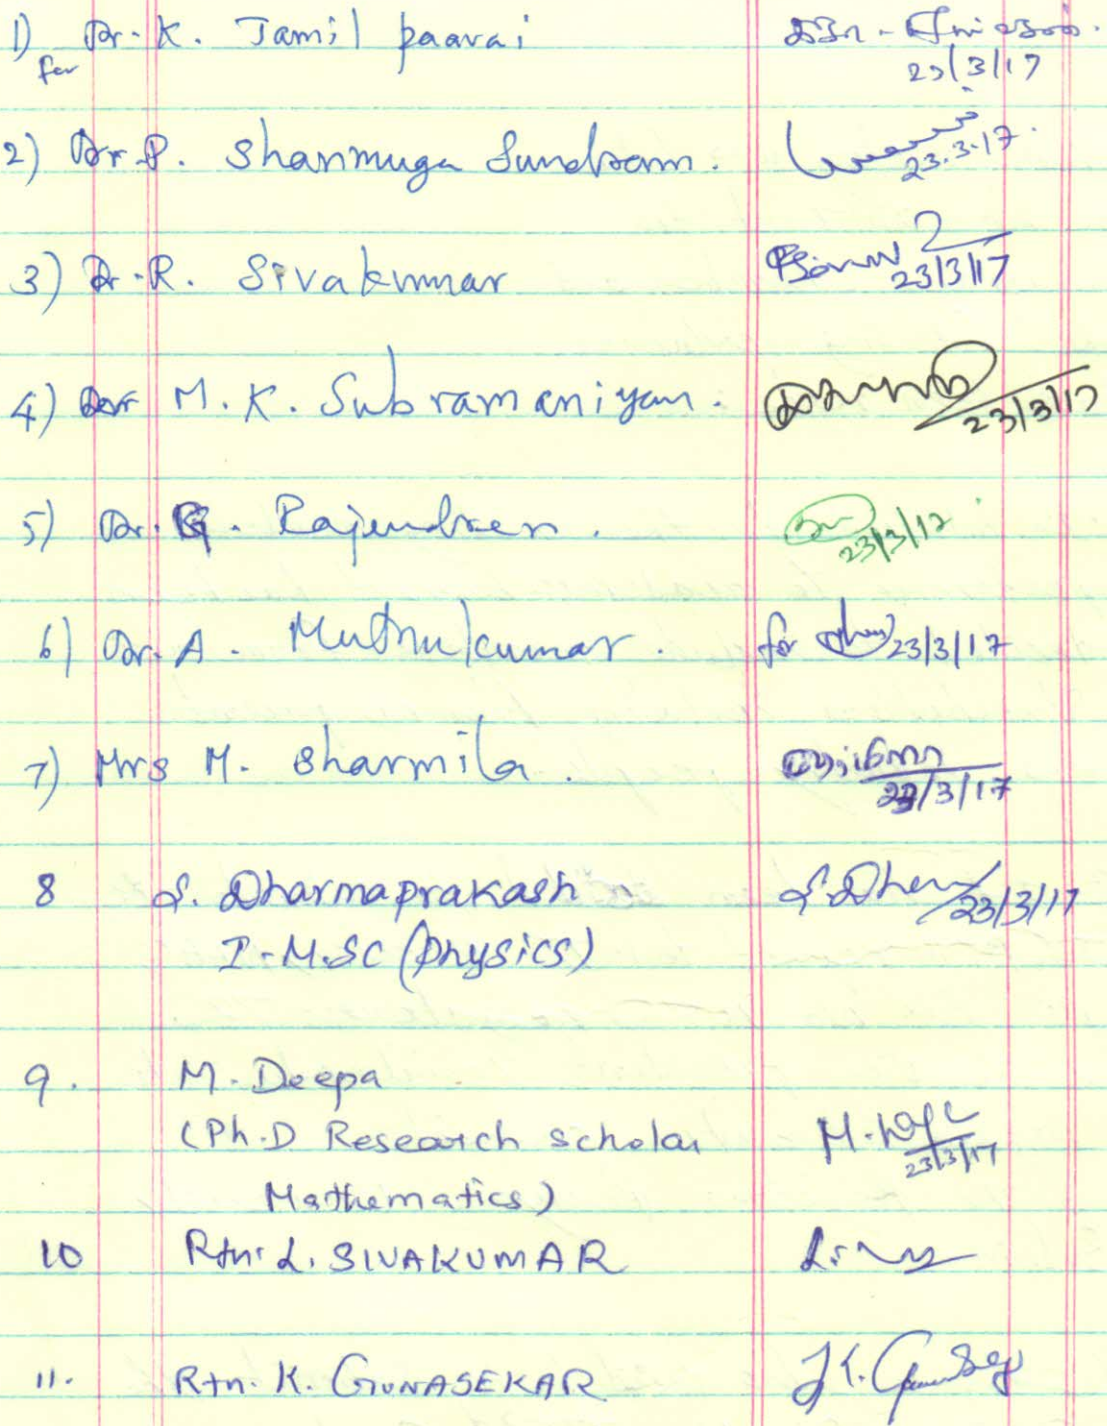 1) Dr. K. Tamil paavai
for 23/3/17
2) Dr. P. Shanmuga Sundram. 23.3.17
3) Dr. R. Sivakumar 23/3/17
4) Dr M. K. Subramaniyan. 23/3/17
5) Dr. G. Rajendren. 23/3/17
6) Dr. A. Muthukumar. for 23/3/17
7) Mrs M. Sharmila. 23/3/17
8 S. Dharmaprakash 23/3/17
I-M.SC (physics)
9. M. Deepa
(Ph.D Research scholar M. 23/3/17
Mathematics)
10 Rtn. L. SIVAKUMAR
11. Rtn. K. GUNASEKAR